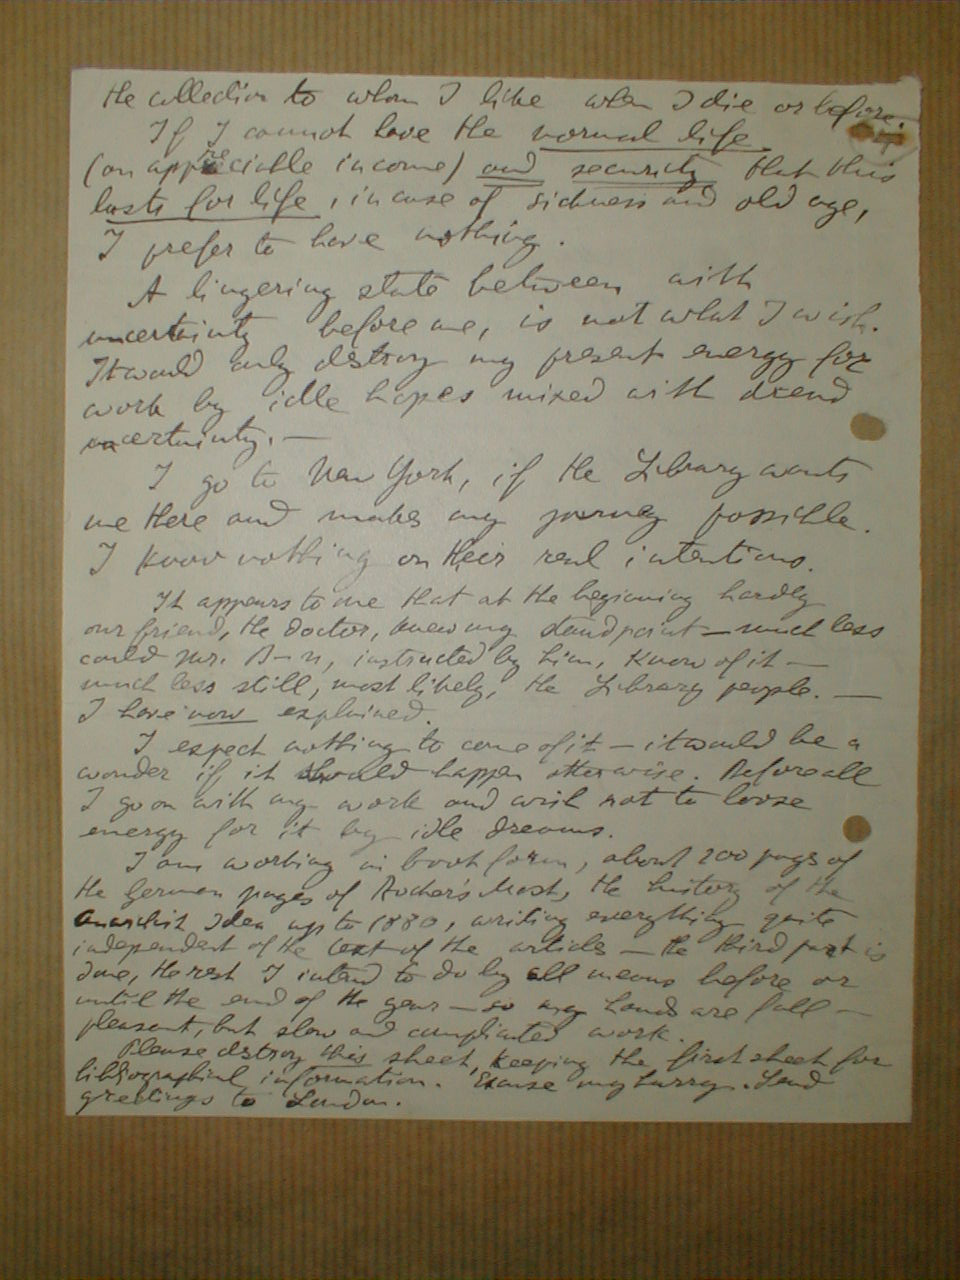 the collection to whom I like when I die or before.
If I cannot have the normal life
(an appreciable income) and security that this
lasts for life, in case of sickness and old age,
I prefer to have nothing.
A lingering state between with
uncertainty before me, is not what I wish.
It would only destroy my present energy for
work by idle hopes mixed with dread
uncertainty. —
I go to New York, if the Library wants
me there and makes my journey possible.
I know nothing on their real intentions.
It appears to me that at the beginning hardly
our friend, the doctor, knew my standpoint — much less
could Mr. B–n, instructed by him, know of it —
much less still, most likely, the Library people. —
I have now explained.
I expect nothing to come of it — it would be a
wonder if it should happen otherwise. Before all
I go on with my work and wish not to loose
energy for it by idle dreams.
I am working in book form, about 200 pages of
the German pages of Rocker's Most, the history of the
anarchist idea up to 1880, writing everything quite
independent of the text of the article — the third part is
done, the rest I intend to do by all means before or
until the end of the year — so my hands are full —
pleasant, but slow and complicated work.
Please destroy this sheet, keeping the first sheet for
bibliographical information. Excuse my hurry. Send
greetings to London.